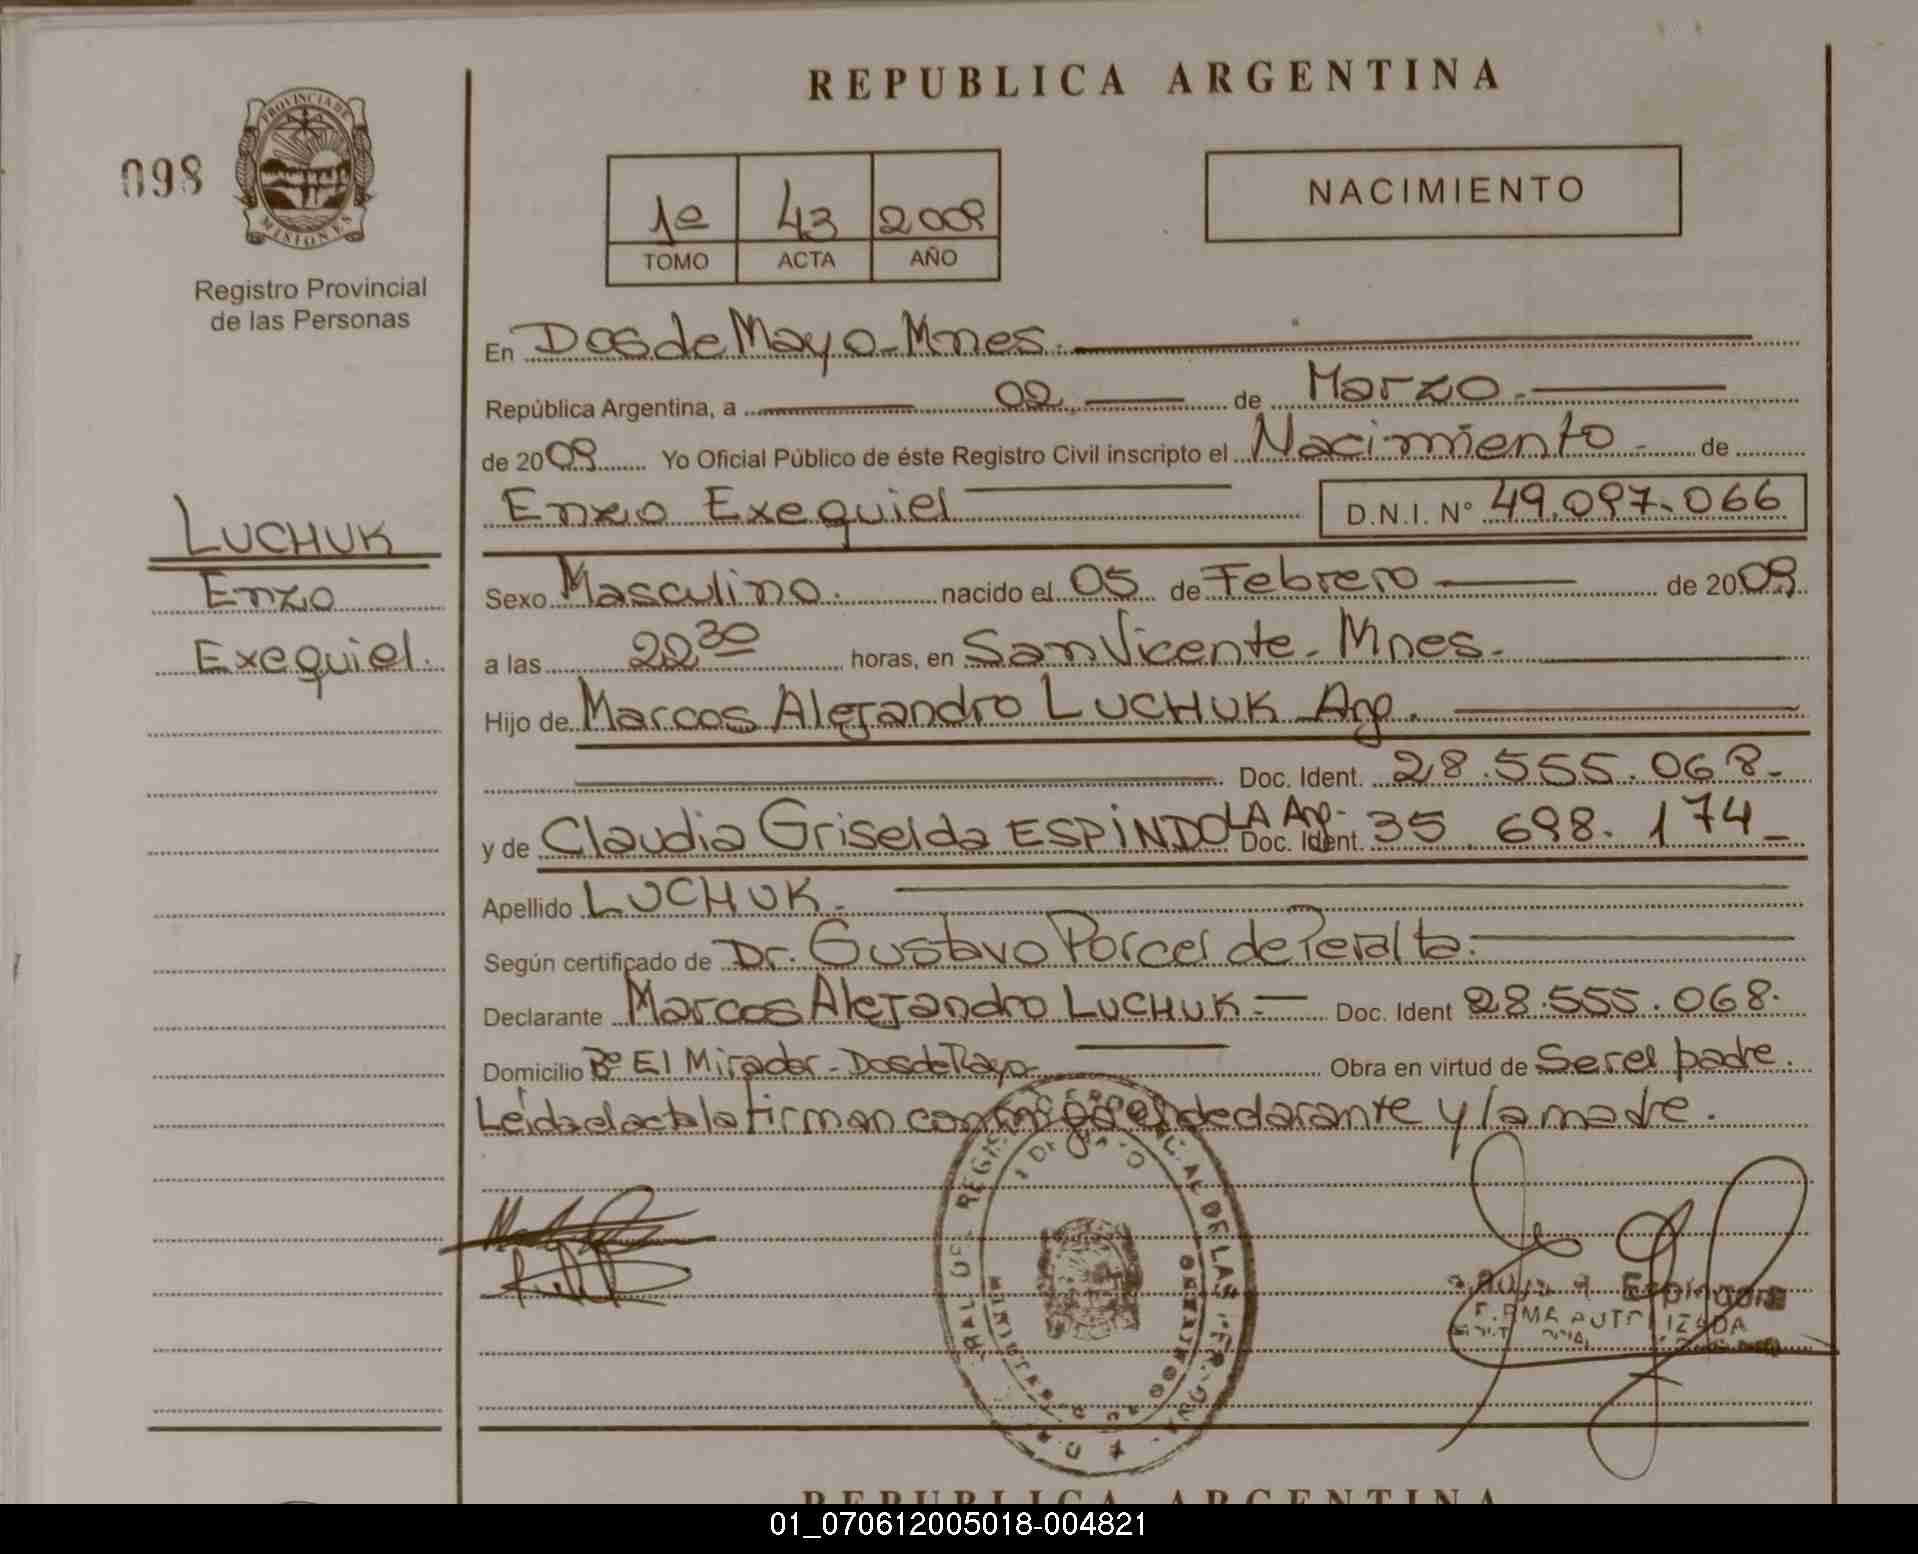 REPUBLICA ARGENTINA
098
PROVINCIA DE
MISIONES
Registro Provincial
de las Personas
1º 43 2009
TOMO ACTA AÑO
NACIMIENTO
En Dos de Mayo - Mnes.
República Argentina, a 02 de Marzo.
de 2009 Yo Oficial Público de éste Registro Civil inscripto el Nacimiento de
Enzo Exequiel D.N.I. Nº 49.097.066
LUCHUK
Enzo
Exequiel.
Sexo Masculino. nacido el 05 de Febrero de 2009
a las 22 30 horas, en San Vicente - Mnes.
Hijo de Marcos Alejandro LUCHUK Arg.
Doc. Ident. 28.555.068.
y de Claudia Griselda ESPINDOLA Arg. Doc. Ident. 35 698.174
Apellido LUCHUK.
Según certificado de Dr. Gustavo Porcel de Peralta.
Declarante Marcos Alejandro LUCHUK Doc. Ident 28.555.068.
Domicilio Bº El Mirador - Dos de Mayo Obra en virtud de Ser el padre.
Leída el acta la firman conmigo el declarante y la madre.
FIRMA AUTORIZADA
REPUBLICA ARGENTINA
01_070612005018-004821